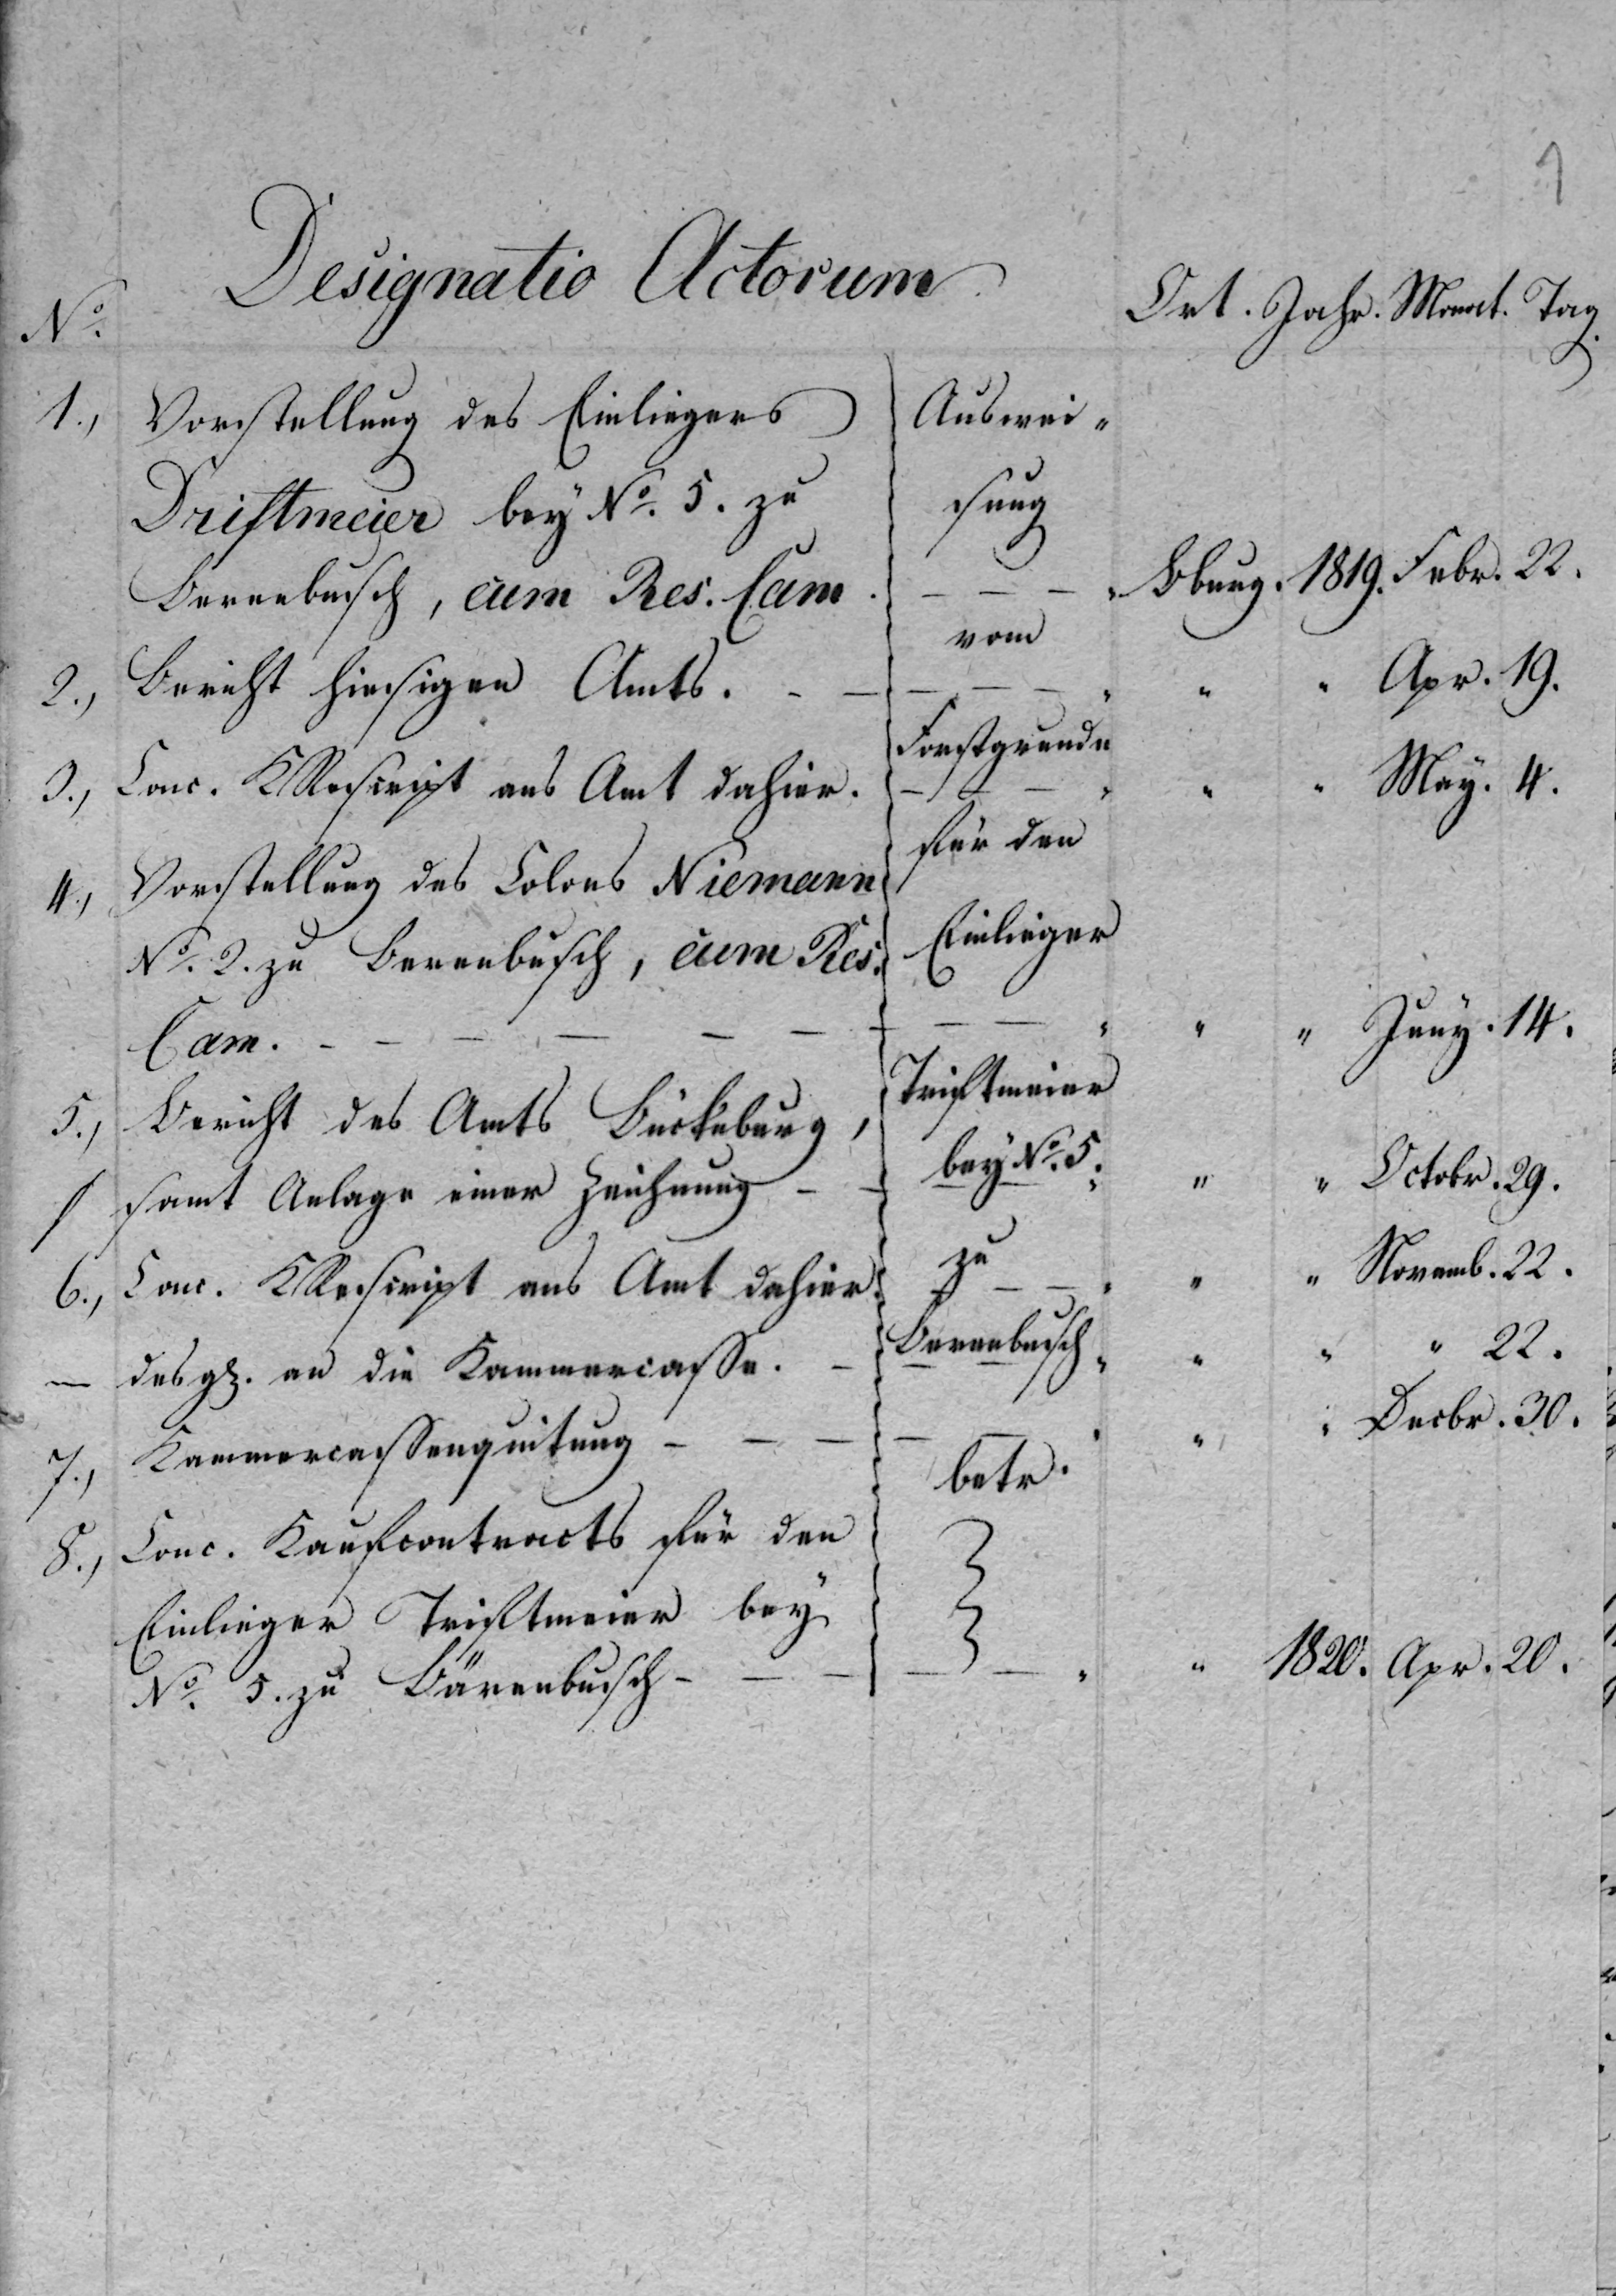 1
Designatio Actorum
No. Ort. Jahr. Monat. Tag.
1., Vorstellung des Einliegers Auswei-
Driftmeier bey No. 5. zu sung
Berenbusch, cum Res. Cam. - - - Bburg. 1819. Febr. 22.
vom
2., Bericht hiesigen Amts. - - - - - " " " Apr. 19.
Forstgrunde
3., Conc. KRescript ans Amt dahier. - - - " " " May. 4.
für den
4., Vorstellung des Colons Niemann
No. 2. zu Berenbusch, cum Res. Einlieger
Cam. - - - - - - - - " " " Juny. 14.
Triftmeier
5., Bericht des Amts Bückeburg,
samt Anlage einer Zeichnung - - bey No. 5. " " " Octobr. 29.
zu
6., Conc. KRescript ans Amt dahier. - - - " " " Novemb. 22.
— desgl. an die Kammercasse. - Berenbusch " " " " 22.
7., Kammercassenquitung - - - - - " " " Decbr. 30.
betr.
8., Conc. Kaufcontracts für den
Einlieger Triftmeier bey
No. 5. zu Bärenbusch - - - - - " " 1820. Apr. 20.